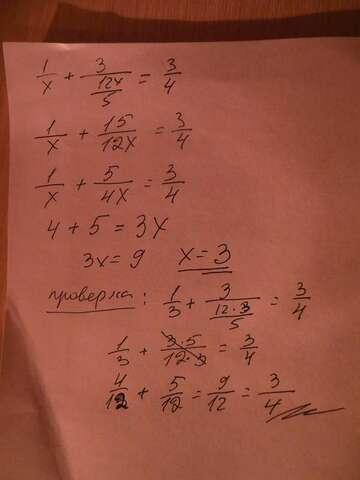 1/x + 3/(12x/5) = 3/4
1/x + 15/12x = 3/4
1/x + 5/4x = 3/4
4 + 5 = 3x
3x = 9 x = 3
проверка: 1/3 + 3/(12·3/5) = 3/4
1/3 + 3·5/12·3 = 3/4
4/12 + 5/12 = 9/12 = 3/4